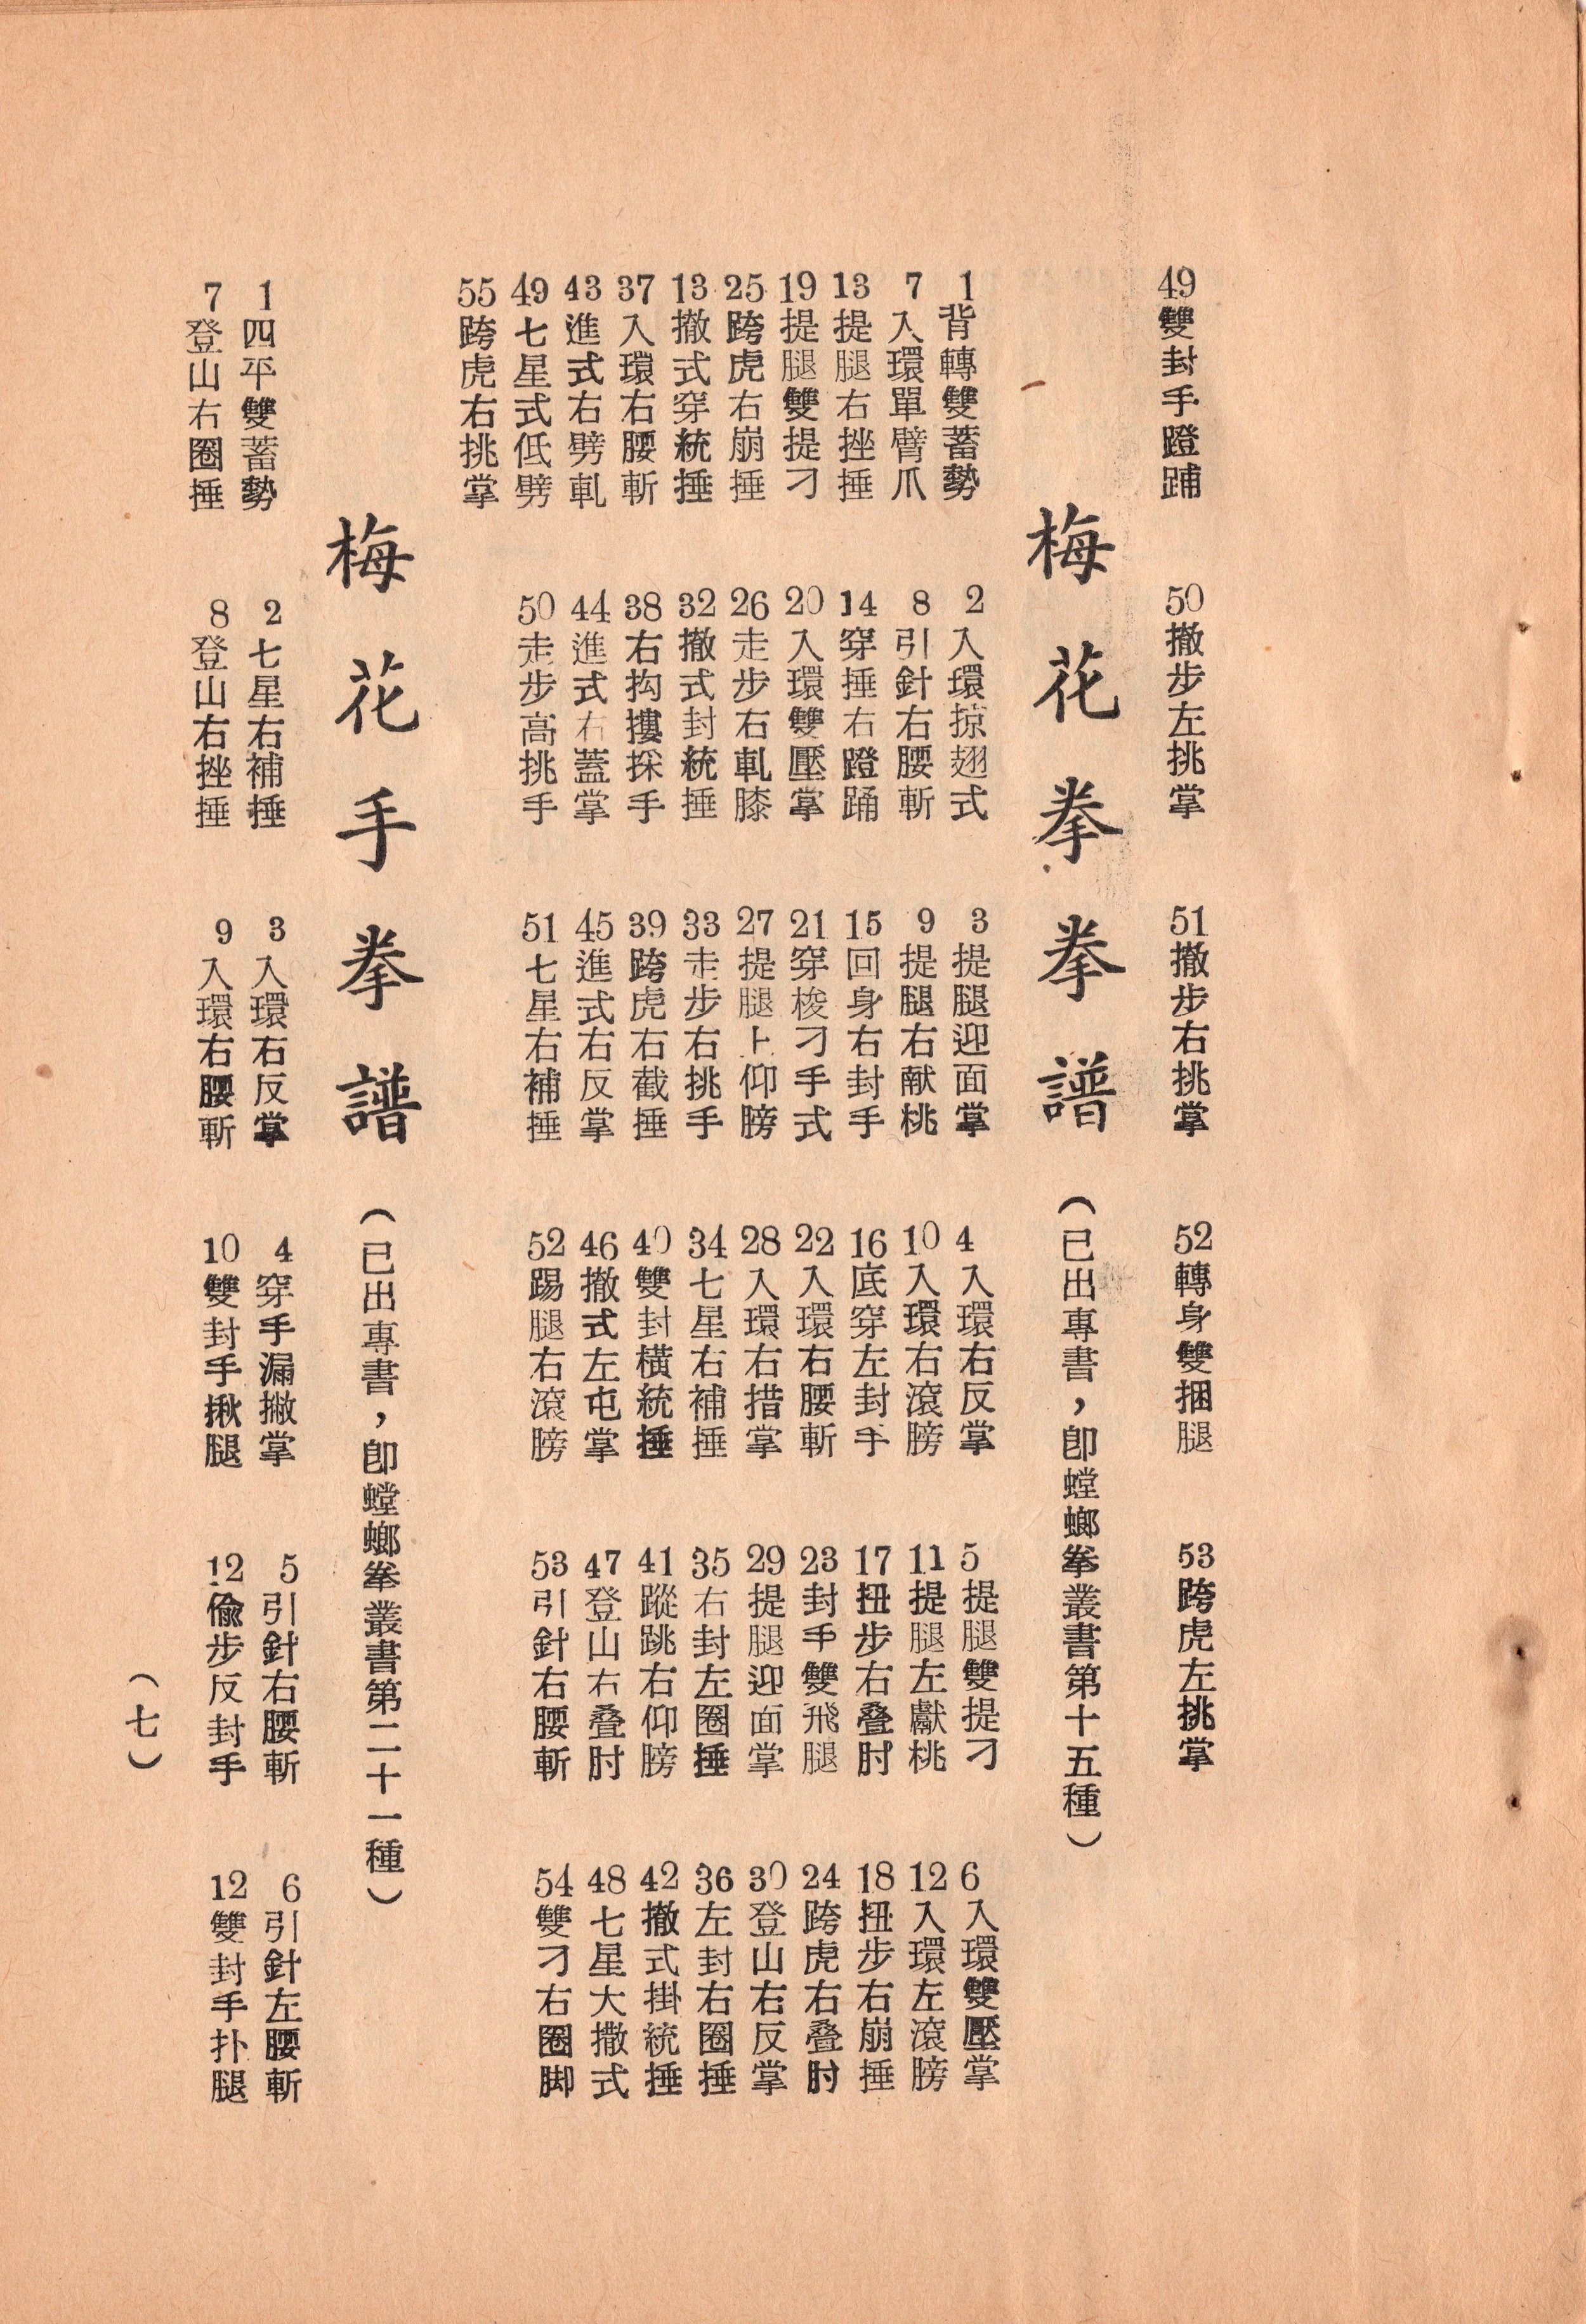 49雙封手蹬踊
50撤步左挑掌
51撤步右挑掌
52轉身雙捆腿
53跨虎左挑掌
梅花拳拳譜（已出專書，卽螳螂拳叢書第十五種）
1背轉雙蓄勢
2入環掠翅式
3提腿迎面掌
4入環右反掌
5提腿雙提刁
6入環雙壓掌
7入環單臂爪
8引針右腰斬
9提腿右献桃
10入環右滾膀
11提腿左獻桃
12入環左滾膀
13提腿右挫捶
14穿捶右蹬踊
15回身右封手
16底穿左封手
17扭步右叠肘
18扭步右崩捶
19提腿雙提刁
20入環雙壓掌
21穿梭刁手式
22入環右腰斬
23封手雙飛腿
24跨虎右叠肘
25跨虎右崩捶
26走步右軋膝
27提腿上仰膀
28入環右措掌
29提腿迎面掌
30登山右反掌
13撤式穿統捶
32撤式封統捶
33走步右挑手
34七星右補捶
35右封左圈捶
36左封右圈捶
37入環右腰斬
38右抅摟採手
39跨虎右截捶
40雙封橫統捶
41蹤跳右仰膀
42撤式掛統捶
43進式右劈軋
44進式右蓋掌
45進式右反掌
46撤式左屯掌
47登山右叠肘
48七星大撒式
49七星式低劈
50走步高挑手
51七星右補捶
52踢腿右滾膀
53引針右腰斬
54雙刁右圈脚
55跨虎右挑掌
梅花手拳譜（已出專書，卽螳螂拳叢書第二十一種）
1四平雙蓄勢
2七星右補捶
3入環右反掌
4穿手漏撇掌
5引針右腰斬
6引針左腰斬
7登山右圈捶
8登山右挫捶
9入環右腰斬
10雙封手揪腿
12偸步反封手
12雙封手扑腿
（七）